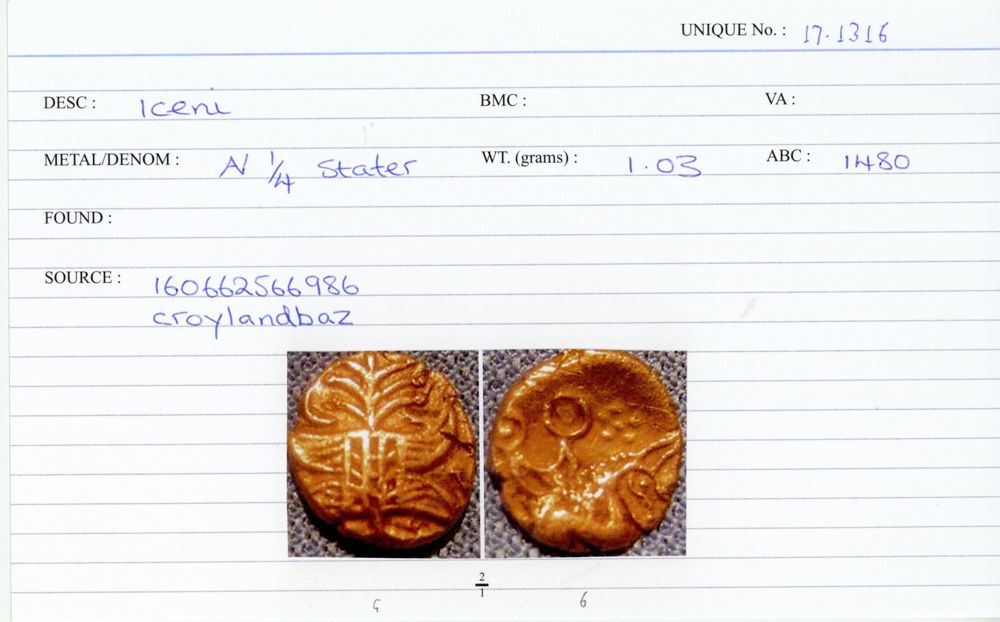 UNIQUE No. : 17.1316
DESC : Iceni BMC : VA :
METAL/DENOM : N 1/4 Stater WT. (grams) : 1.03 ABC : 1480
FOUND :
SOURCE : 160662566986
croylandbaz
2/1
5 6